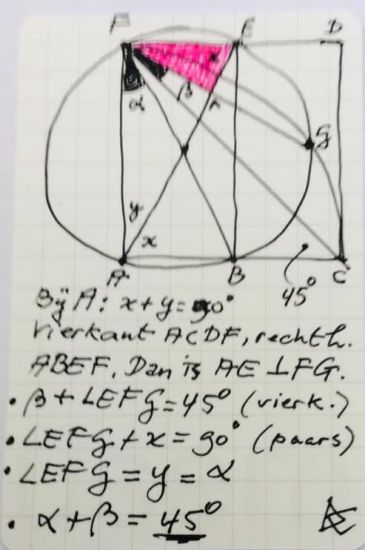 F E D
α β
G
y
x
A B C
45°
Bij A: x+y=90°
Vierkant ACDF, rechth.
ABEF. Dan is AE ⊥ FG.
• β+∠EFG=45° (vierk.)
• ∠EFG+x=90° (paars)
• ∠EFG=y=α
• α+β=45°